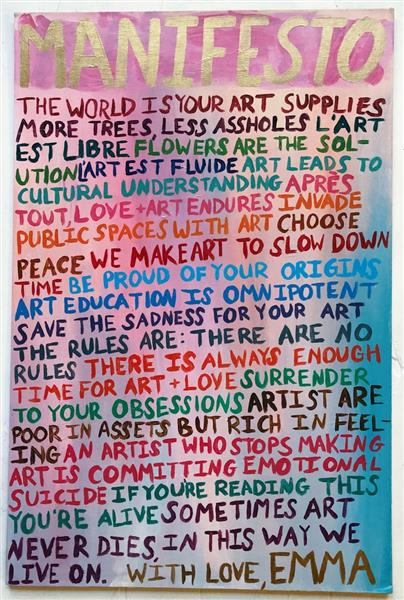 MANIFESTO
THE WORLD IS YOUR ART SUPPLIES
MORE TREES, LESS ASSHOLES L'ART
EST LIBRE FLOWERS ARE THE SOL-
UTION L'ART EST FLUIDE ART LEADS TO
CULTURAL UNDERSTANDING APRÈS
TOUT, LOVE + ART ENDURES INVADE
PUBLIC SPACES WITH ART CHOOSE
PEACE WE MAKE ART TO SLOW DOWN
TIME BE PROUD OF YOUR ORIGINS
ART EDUCATION IS OMNIPOTENT
SAVE THE SADNESS FOR YOUR ART
THE RULES ARE: THERE ARE NO
RULES THERE IS ALWAYS ENOUGH
TIME FOR ART + LOVE SURRENDER
TO YOUR OBSESSIONS ARTIST ARE
POOR IN ASSETS BUT RICH IN FEEL-
ING AN ARTIST WHO STOPS MAKING
ART IS COMMITTING EMOTIONAL
SUICIDE IF YOU'RE READING THIS
YOU'RE ALIVE SOMETIMES ART
NEVER DIES, IN THIS WAY WE
LIVE ON. WITH LOVE, EMMA